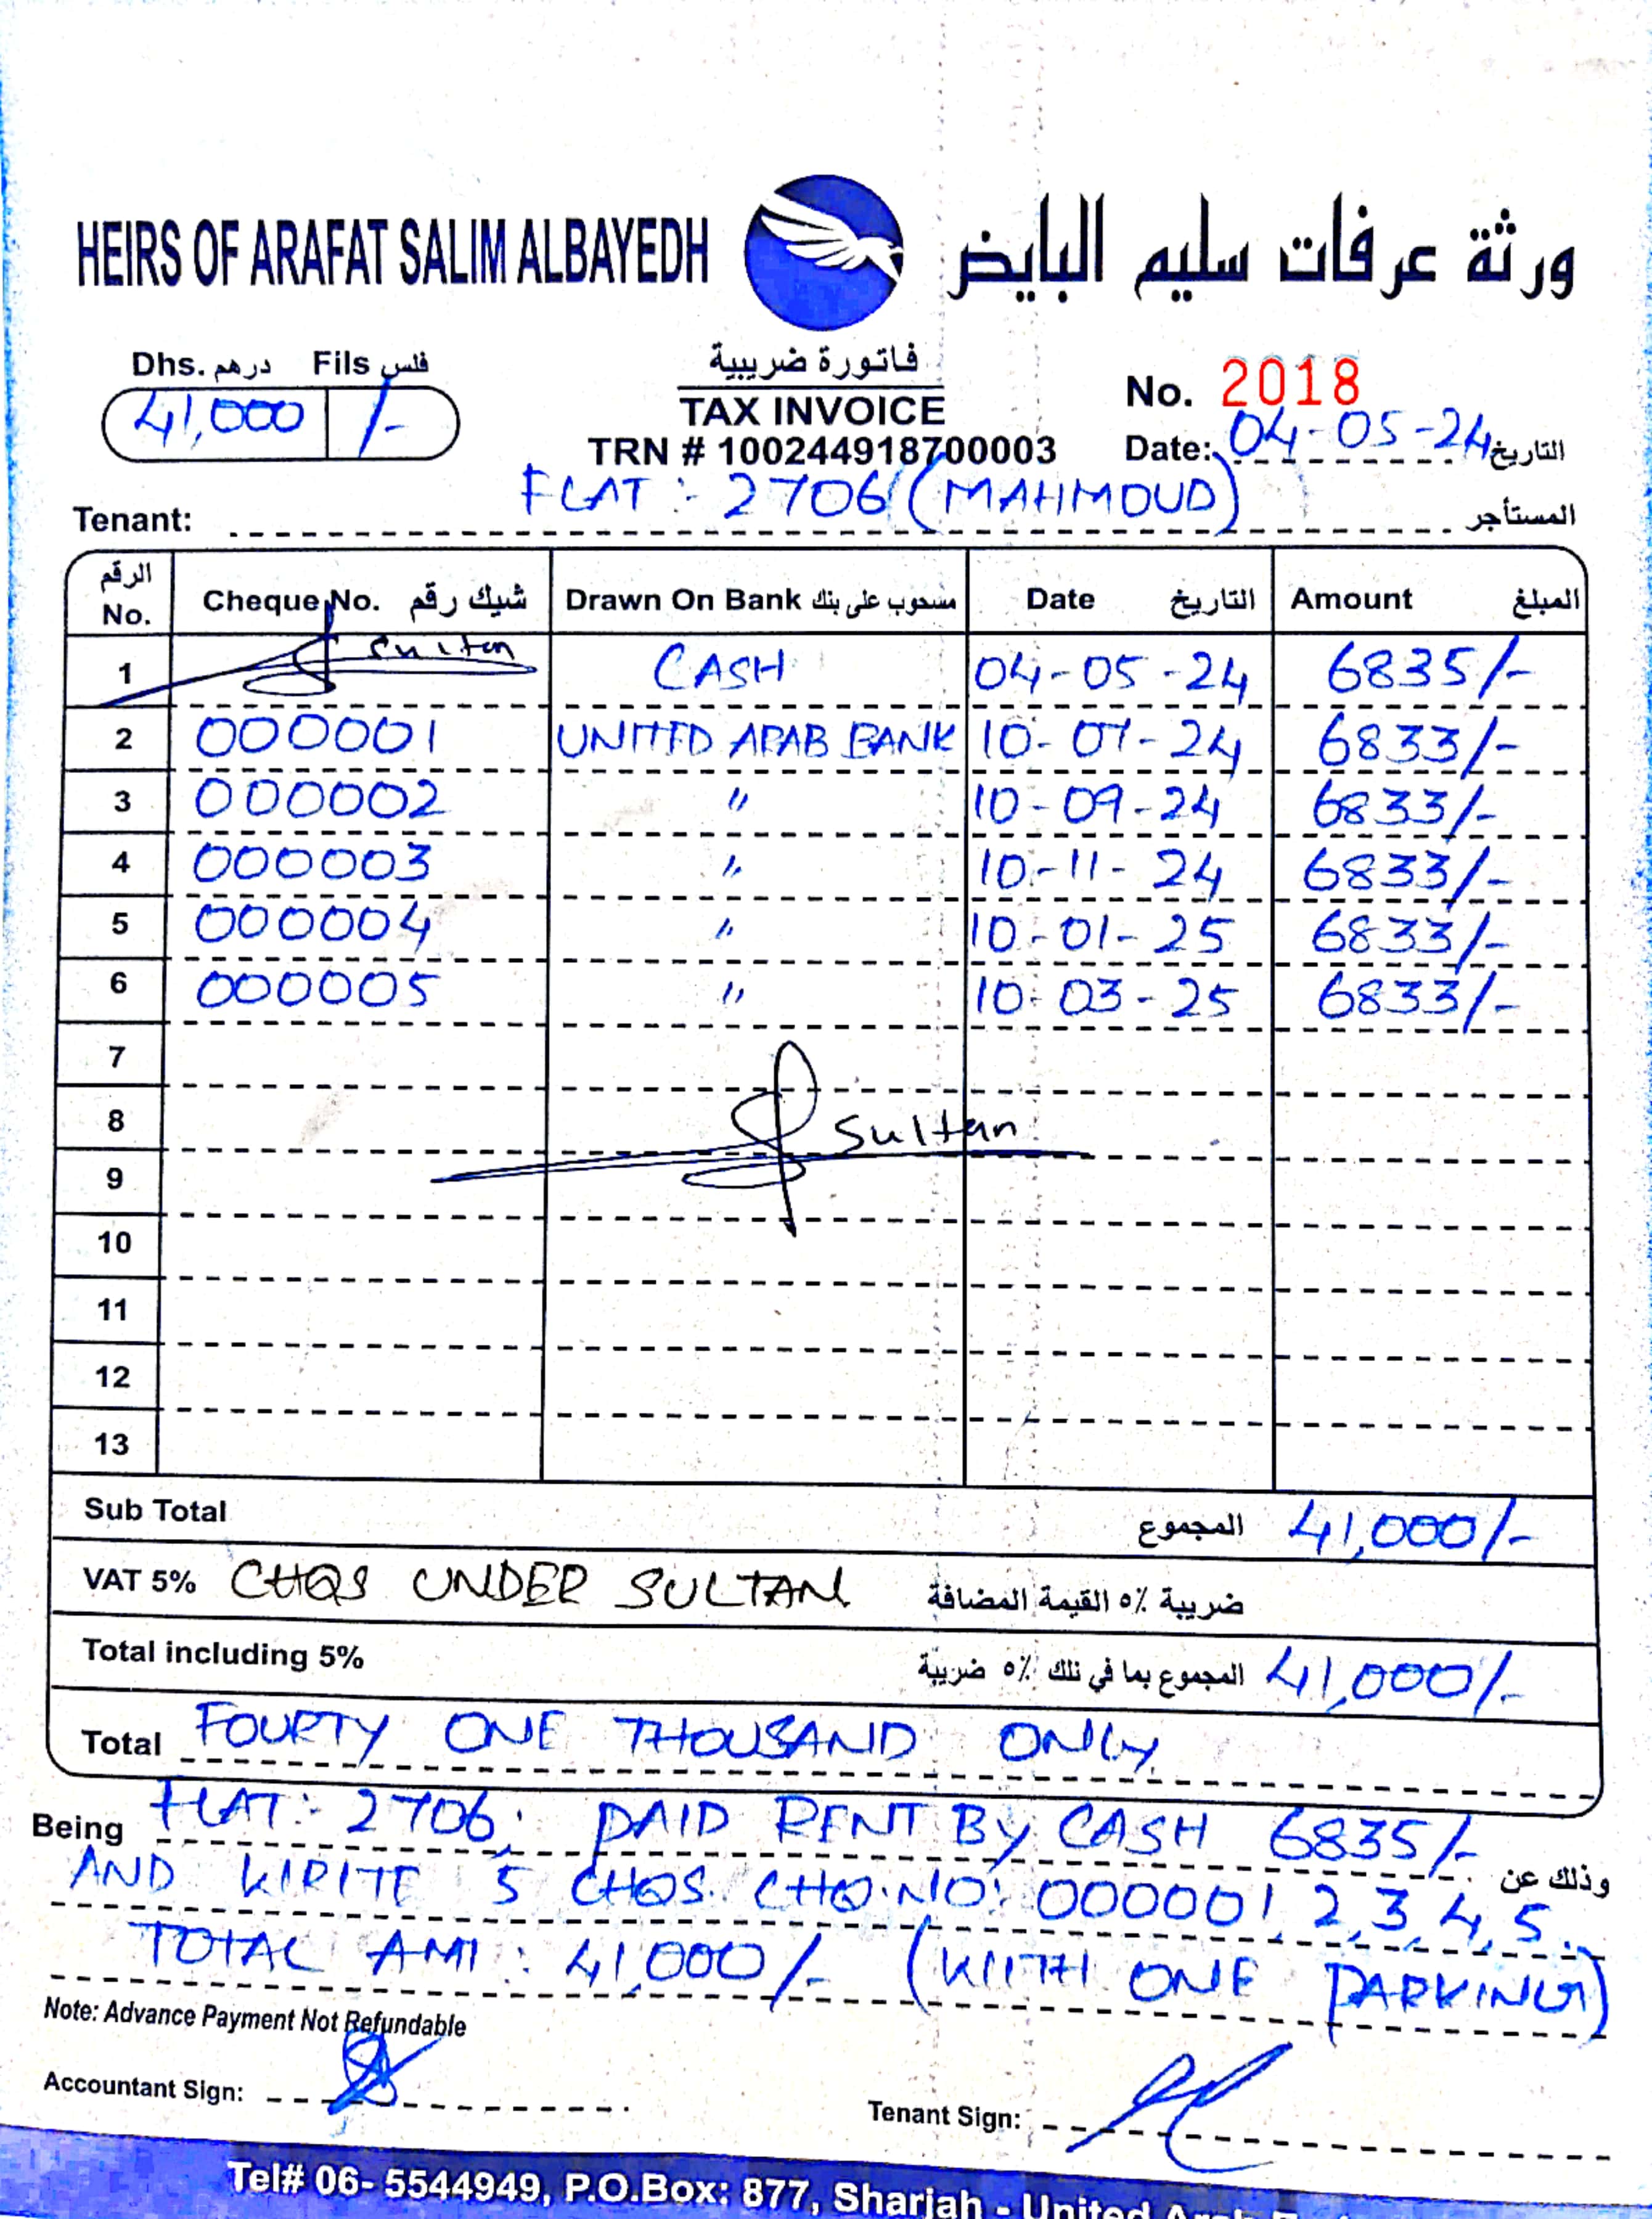 HEIRS OF ARAFAT SALIM ALBAYEDH ورثة عرفات سليم البايض
Dhs. درهم Fils فلس
41,000 /-
فاتورة ضريبية
TAX INVOICE
TRN # 100244918700003
No. 2018
Date: 04-05-24 التاريخ
Tenant: FLAT :- 2706 (MAHMOUD) المستأجر
الرقم No. Cheque No. شيك رقم Drawn On Bank مسحوب على بنك Date التاريخ Amount المبلغ
1 Sultan CASH 04-05-24 6835/-
2 000001 UNITED ARAB BANK 10-07-24 6833/-
3 000002 " 10-09-24 6833/-
4 000003 " 10-11-24 6833/-
5 000004 " 10-01-25 6833/-
6 000005 " 10-03-25 6833/-
7
8 Sultan
9
10
11
12
13
Sub Total المجموع 41,000/-
VAT 5% CHQS UNDER SULTAN ضريبة ٥٪ القيمة المضافة
Total including 5% المجموع بما في ذلك ٥٪ ضريبة 41,000/-
Total FOURTY ONE THOUSAND ONLY.
Being FLAT:- 2706, PAID RENT BY CASH 6835/- وذلك عن
AND WRITE 5 CHQS. CHQ.NO: 000001,2,3,4,5.
TOTAL AMT : 41,000/- (WITH ONE PARKING)
Note: Advance Payment Not Refundable
Accountant Sign:
Tenant Sign:
Tel# 06- 5544949, P.O.Box: 877, Sharjah - United